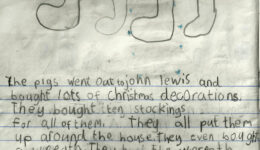 the pigs went out to john lewis and
bought lots of Christmas decorations.
They bought ten stockings
for all of them. They all put them
up around the house. They even bought